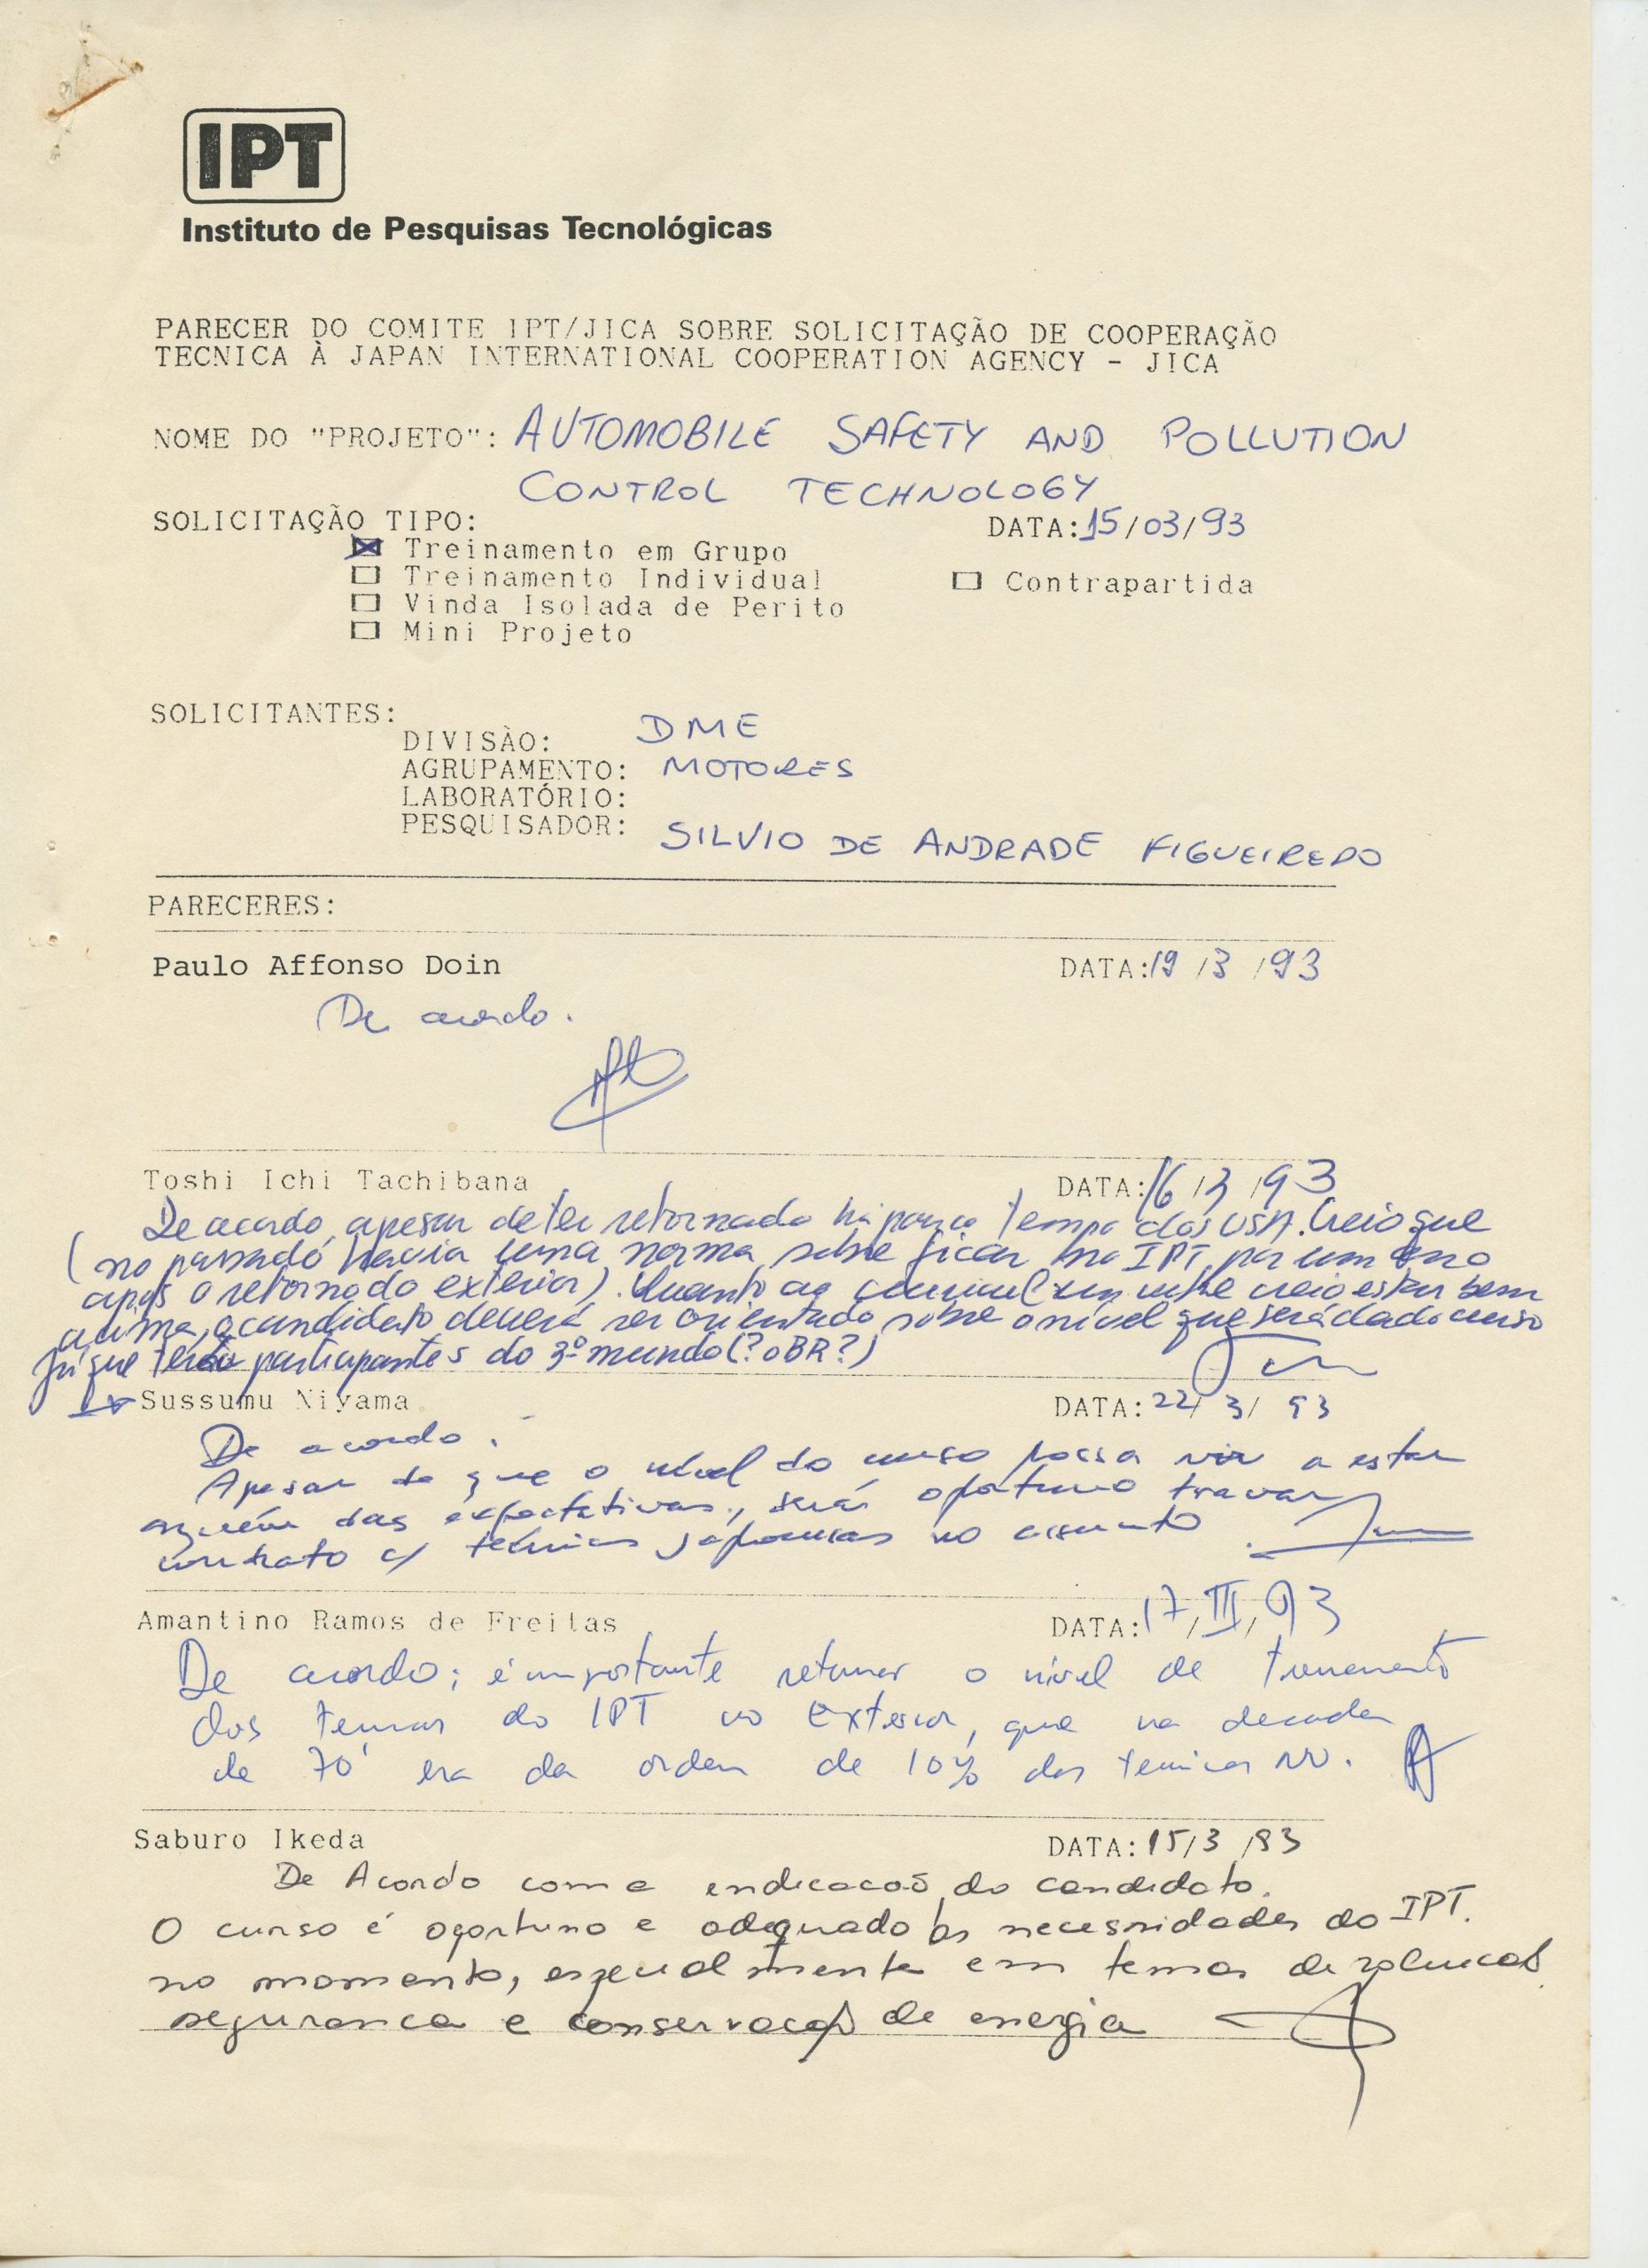 IPT
Instituto de Pesquisas Tecnológicas
PARECER DO COMITE IPT/JICA SOBRE SOLICITAÇÃO DE COOPERAÇÃO
TECNICA À JAPAN INTERNATIONAL COOPERATION AGENCY - JICA
NOME DO "PROJETO": AUTOMOBILE SAFETY AND POLLUTION
CONTROL TECHNOLOGY
SOLICITAÇÃO TIPO: DATA: 15/03/93
Treinamento em Grupo
Treinamento Individual Contrapartida
Vinda Isolada de Perito
Mini Projeto
SOLICITANTES:
DIVISÀO: DME
AGRUPAMENTO: MOTORES
LABORATÓRIO:
PESQUISADOR: SILVIO DE ANDRADE FIGUEIREDO
PARECERES:
Paulo Affonso Doin DATA: 19/3/93
De acordo.
Toshi Ichi Tachibana DATA: 16/3/93
De acordo, apesar de ter retornado há pouco tempo dos USA. Creio que
(no passado havia uma norma sobre ficar no IPT por um ano
após o retorno do exterior). Quanto ao creio estar bem
acima, o candidato deverá ser orientado sobre o nível que será dado curso
já que terão participantes do 3º mundo (? o BR?)
Sussumu Niyama DATA: 22/3/93
De acordo.
Apesar de que o nível do curso possa vir a estar
aquém das expectativas, será oportuno travar
contato c/ técnicos japoneses no assunto
Amantino Ramos de Freitas DATA: 17/III/93
De acordo; é importante retomar o nível de treinamento
dos técnicos do IPT no Exterior, que na decada
de 70 era da ordem de 10% dos técnicos NU.
Saburo Ikeda DATA: 15/3/93
De Acordo com a indicacaõ do candidato.
O curso é oportuno e adequado às necessidades do IPT.
no momento, especialmente em temas de poluicaõ
seguranca e conservacaõ de energia